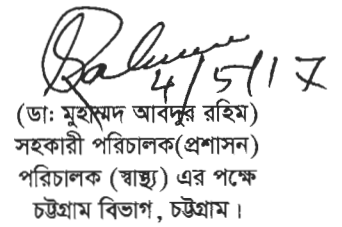 4/5/17
(ডা: মুহাম্মদ আবদুর রহিম)
সহকারী পরিচালক(প্রশাসন)
পরিচালক (স্বাস্থ্য) এর পক্ষে
চট্টগ্রাম বিভাগ, চট্টগ্রাম।